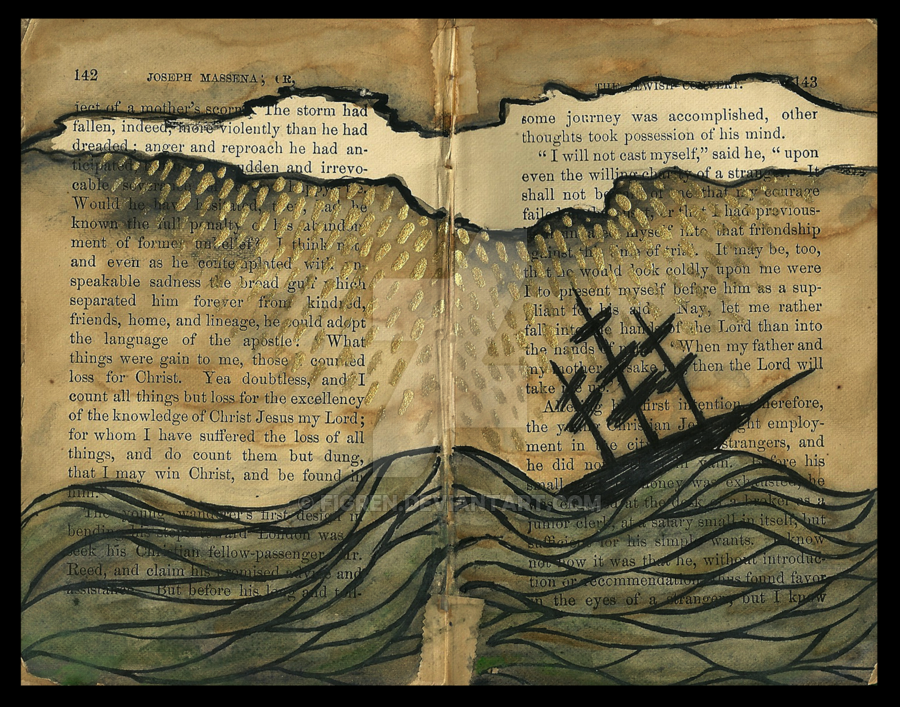 142 JOSEPH MASSENA; OR,
ject of a mother's scorn. The storm had
fallen, indeed, more violently than he had
dreaded: anger and reproach he had an-
udden and irrevo-
cable
Would he have
known the full penalty his
ment of former unbelief? I think not
and even as he contemplated with
speakable sadness the broad gulf which
separated him forever from kindred,
friends, home, and lineage, he could adopt
the language of the apostle: What
things were gain to me, those counted
loss for Christ. Yea doubtless, and I
count all things but loss for the excellency
of the knowledge of Christ Jesus my Lord;
for whom I have suffered the loss of all
things, and do count them but dung,
that I may win Christ, and be found in
him.
The young wanderer's first design in
London was
seek his Christian fellow-passenger, Mr.
Reed, and claim his promised advice and
assistance. But before his
THE JEWISH CONVERT. 143
some journey was accomplished, other
thoughts took possession of his mind.
“ I will not cast myself,” said he, “ upon
even the willing charity of a stranger. It
shall not be me that my courage
failed that I had previous-
myself into that friendship
It may be, too,
that he would look coldly upon me were
I to present myself before him as a sup-
pliant for his aid. Nay, let me rather
fall into the hands of the Lord than into
the hands of When my father and
my mother then the Lord will
take
first intention, therefore,
the Christian employ-
ment in the strangers, and
he did no before his
small was exhausted, he
at the desk of a broker as a
junior clerk, at a salary small in itself, but
sufficient for his simple wants. I know
not how it was that he, without introduc-
tion or recommendation, thus found favor
in the eyes of a stranger, but I know
© FIGREN.DEVIANTART.COM